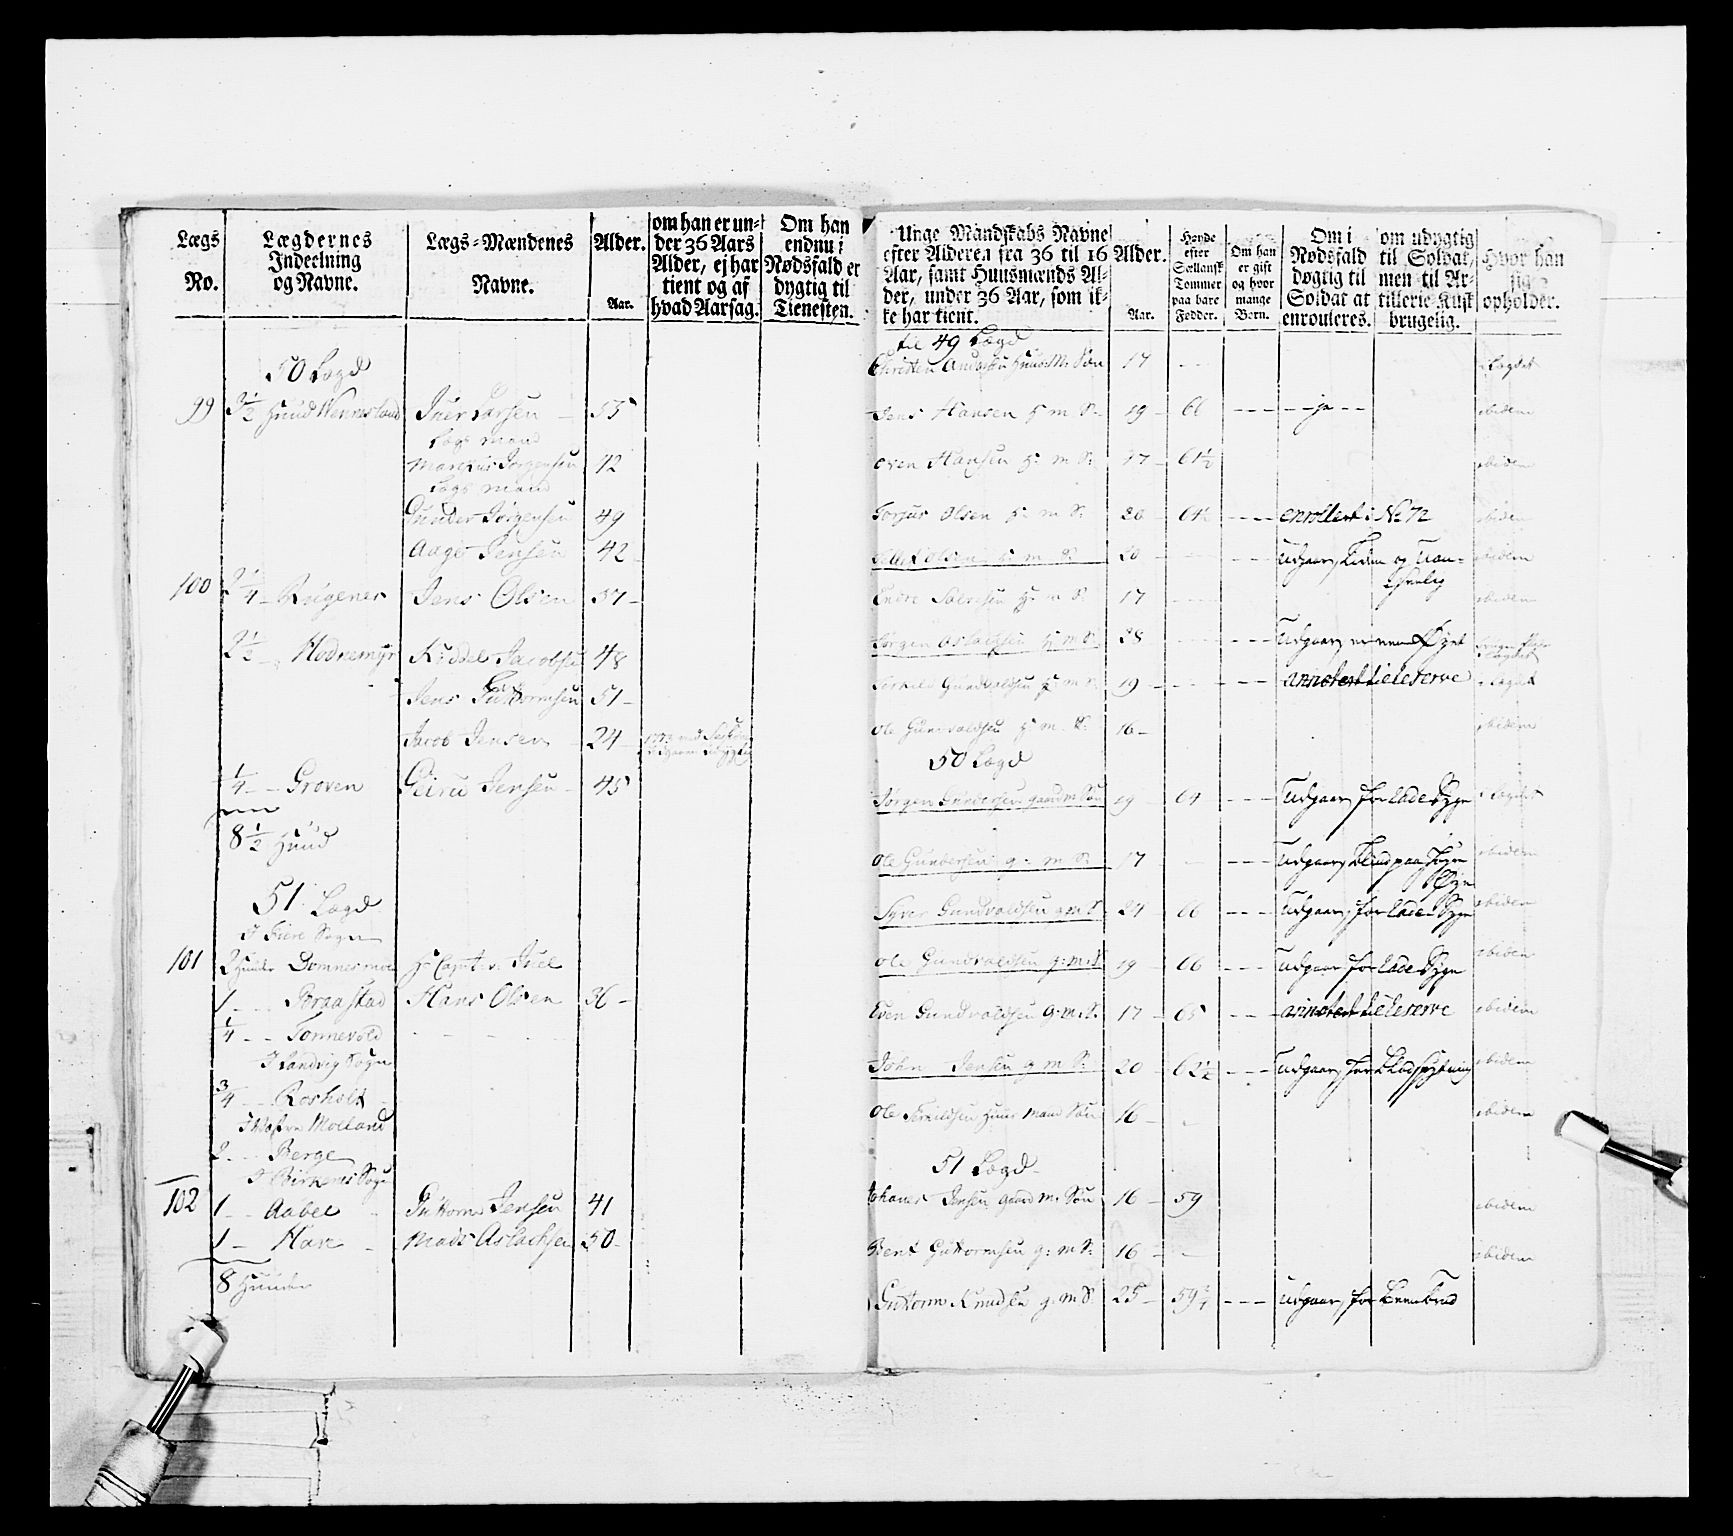 Lægs No.
Lægdernes Indeelning og Navne.
Lægs-Mændenes Navne.
Alder. Aar.
om han er un-
der 36 Aars
Alder, ej har
tient og af
hvad Aarsag.
Om han
endnu i
Nødsfald er
dygtig til
Tienesten.
50 Lægd
99 3½ Huud Wennesland Iver Larsen 55
Lægs mand
Marckus Jørgensen 42
Lægs mand
Gunder Jørgensen 49
Aage Jensen 42
100 2¼ Rugenes Jens Olsen 37
2½ Hodnemyr Kiddel Jacobsen 48
Jens Guttormsen 51
Jacob Jensen 24
¼ Groven Geiru Jensen 45
8½ Huud
51 Lægd
I Fiere Sogn
101 2 Huuder Domnesmoe Hr Capt. v. Juel
1 Braastad Hans Olsen 36
¼ Tonnevold
I Landvig Sogn
¾ Rosholt
Molland
2 Berge
I Birkenes Sogn
102 1 Aabel Guttorm Jensen 41
1 Hare Mads Aslachsen 50
8 Huuder
Unge Mandskabs Navne
efter Alderen fra 36 til 16
Aar, samt Huusmænds Al-
der, under 36 Aar, som ik-
ke har tient.
Alder. Aar.
Høyde
efter
Sællansk
Tommer
paa bare
Fødder.
Om han
er gift
og hvor
mange
Børn.
Om i
Nødsfald
døgtig til
Soldat at
enrouleres.
om udygtig
til Soldat,
men til Ar-
tillerie Kusk
brugelig.
Hvor han
sig
opholder.
til 49 Lægd
Christen Anders: Huus M. Søn 17 i Lægdet
Jens Hansen H m S. 19 66 ja ibidem
Even Hansen H: m S: 17 61½ ibidem
Torjus Olsen H: m S: 20 64½ enrollert: No 72 ibidem
Olsen H m S. 20 Udgaar, Liden og Uan-
seelig ibidem
Endre H: m S. 17 ibidem
Jørgen Aslachsen H m S. 28 Udgaar Øyet
Terkild Gundvaldsen H m S. 19 annotert til Reserve i Lægdet
Ole Gundvaldsen H. m. S. 16 ibidem
50 Lægd
Jørgen Gundersen gaard m Søn 19 64 Udgaar, for lade Øyne i Lægdet
Ole Gundersen g: m S: 17 Udgaar, Blind paa høyre
Øye ibidem
Syver Gundvaldsen g m S 24 66 Udgaar, for lade Øyne ibidem
Ole Gundvaldsen g: m: S 19 66 Udgaar for lade Øyne ibidem
Even Gundvaldsen g: m: S. 17 65 annotert til Reserve ibidem
John Jensen g m S: 20 62½ Udgaar, for Blodspytning ibidem
Ole Terkildsen Huus Mand Søn 16 ibidem
51 Lægd
Johanes Jensen gaard M: Søn 16 59 ibidem
Bent Guttormsen g: m S: 16 ibidem
Guttorm Knudsen g: m S. 25 59¾ Udgaar, for Beenbrud